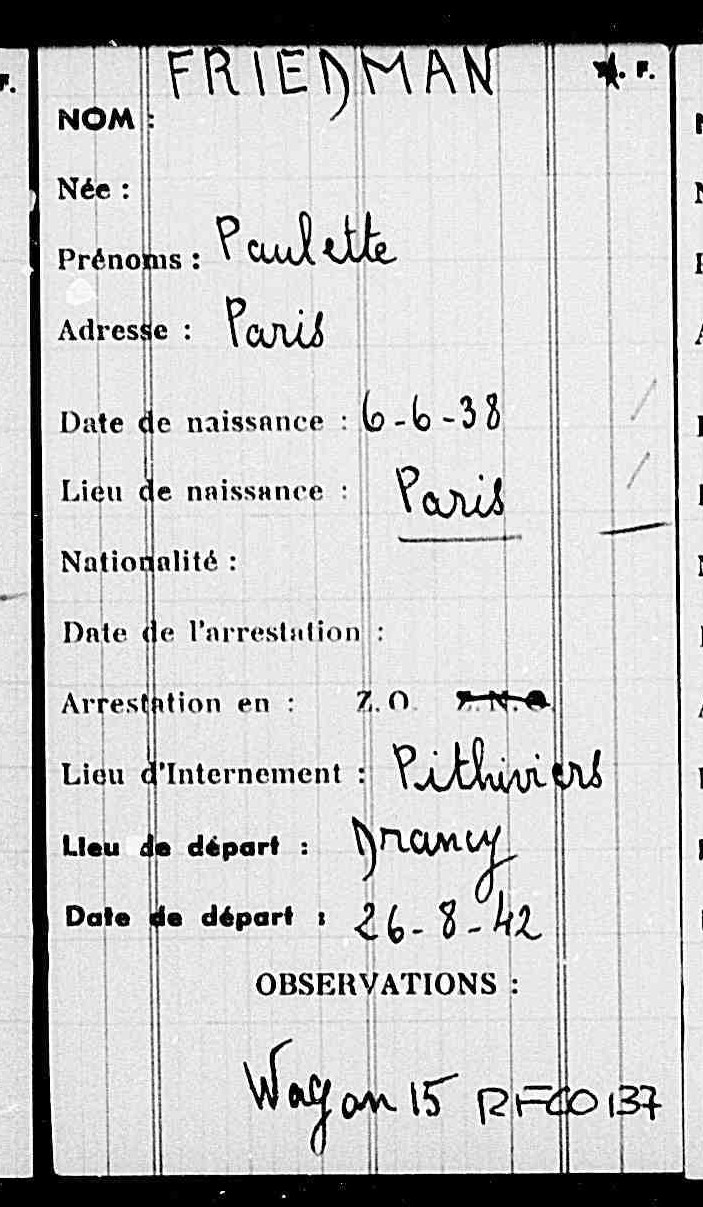 FRIEDMAN
F.
NOM :
Née :
Prénoms : Paulette
Adresse : Paris
Date de naissance : 6-6-38
Lieu de naissance : Paris
Nationalité :
Date de l'arrestation :
Arrestation en : Z.O. Z.N.O
Lieu d'Internement : Pithiviers
Lieu de départ : Drancy
Date de départ : 26-8-42
OBSERVATIONS :
Wagon 15 RFCO 137